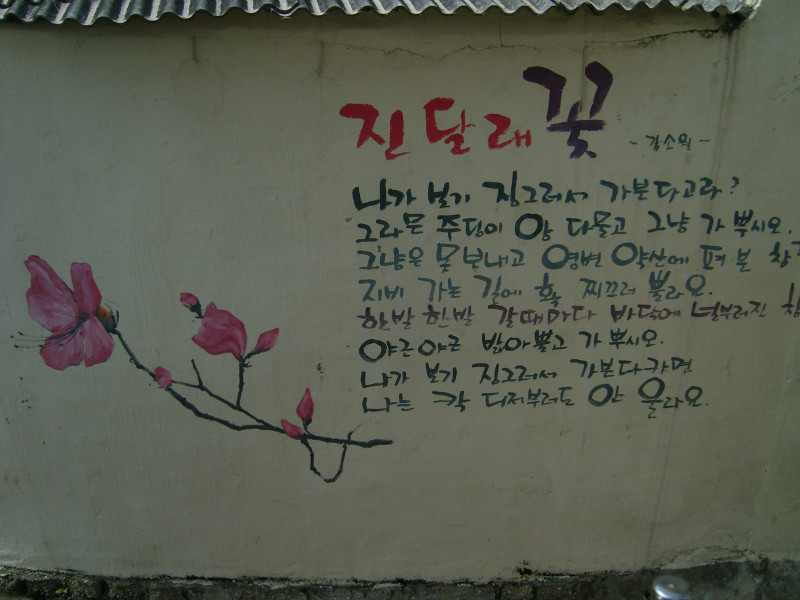 진달래꽃
-김소월-
나가 보기 징그러서 가분다고라?
그라믄 주딩이 앙 다물고 그냥 가 뿌시오.
그냥은 못 보내고 영변 약산에 펴 분 참
지비 가는 길에 확 찌끄러 뿔라요.
한발 한발 갈때마다 바닥에 널부러진 참
야근야근 밥아뿔고 가 뿌시오.
나가 보기 징그러서 가분다카면
나는 칵 디져부러도 안 울라요.